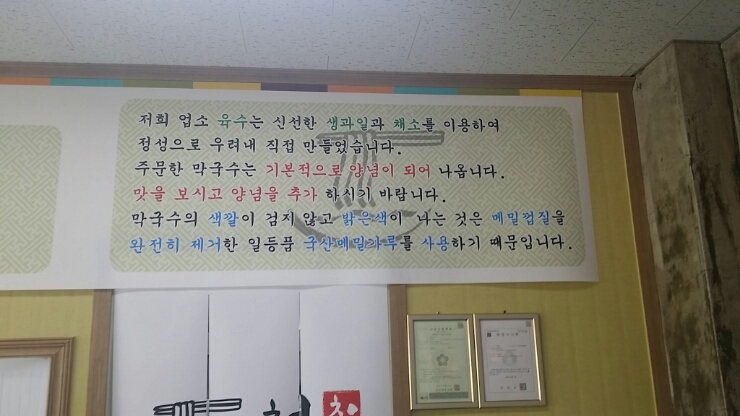 저희 업소 육수는 신선한 생과일과 채소를 이용하여
정성으로 우려내 직접 만들었습니다.
주문한 막국수는 기본적으로 양념이 되어 나옵니다.
맛을 보시고 양념을 추가 하시기 바랍니다.
막국수의 색깔이 검지 않고 밝은색이 나는 것은 메밀껍질을
완전히 제거한 일등품 국산메밀가루를 사용하기 때문입니다.